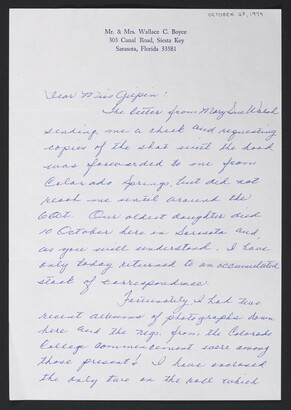 OCTOBER 27, 1979
Mr. & Mrs. Wallace C. Boyce
305 Canal Road, Siesta Key
Sarasota, Florida 33581
Dear Miss
The letter from Mary Sue Walsh
sending me a check and requesting
copies of the shot with the hood
was forwarded to me from
Colorado Springs, but did not
reach me until around the
6th Oct. Our oldest daughter died
10 October here in Sarasota and,
as you will understand, I have
only today returned to an accumulated
stack of correspondence.
Fortunately, I had two
recent albums of photographs down
here and the negs. from the Colorado
College commencement were among
those present! I have enclosed
the only two on the roll which